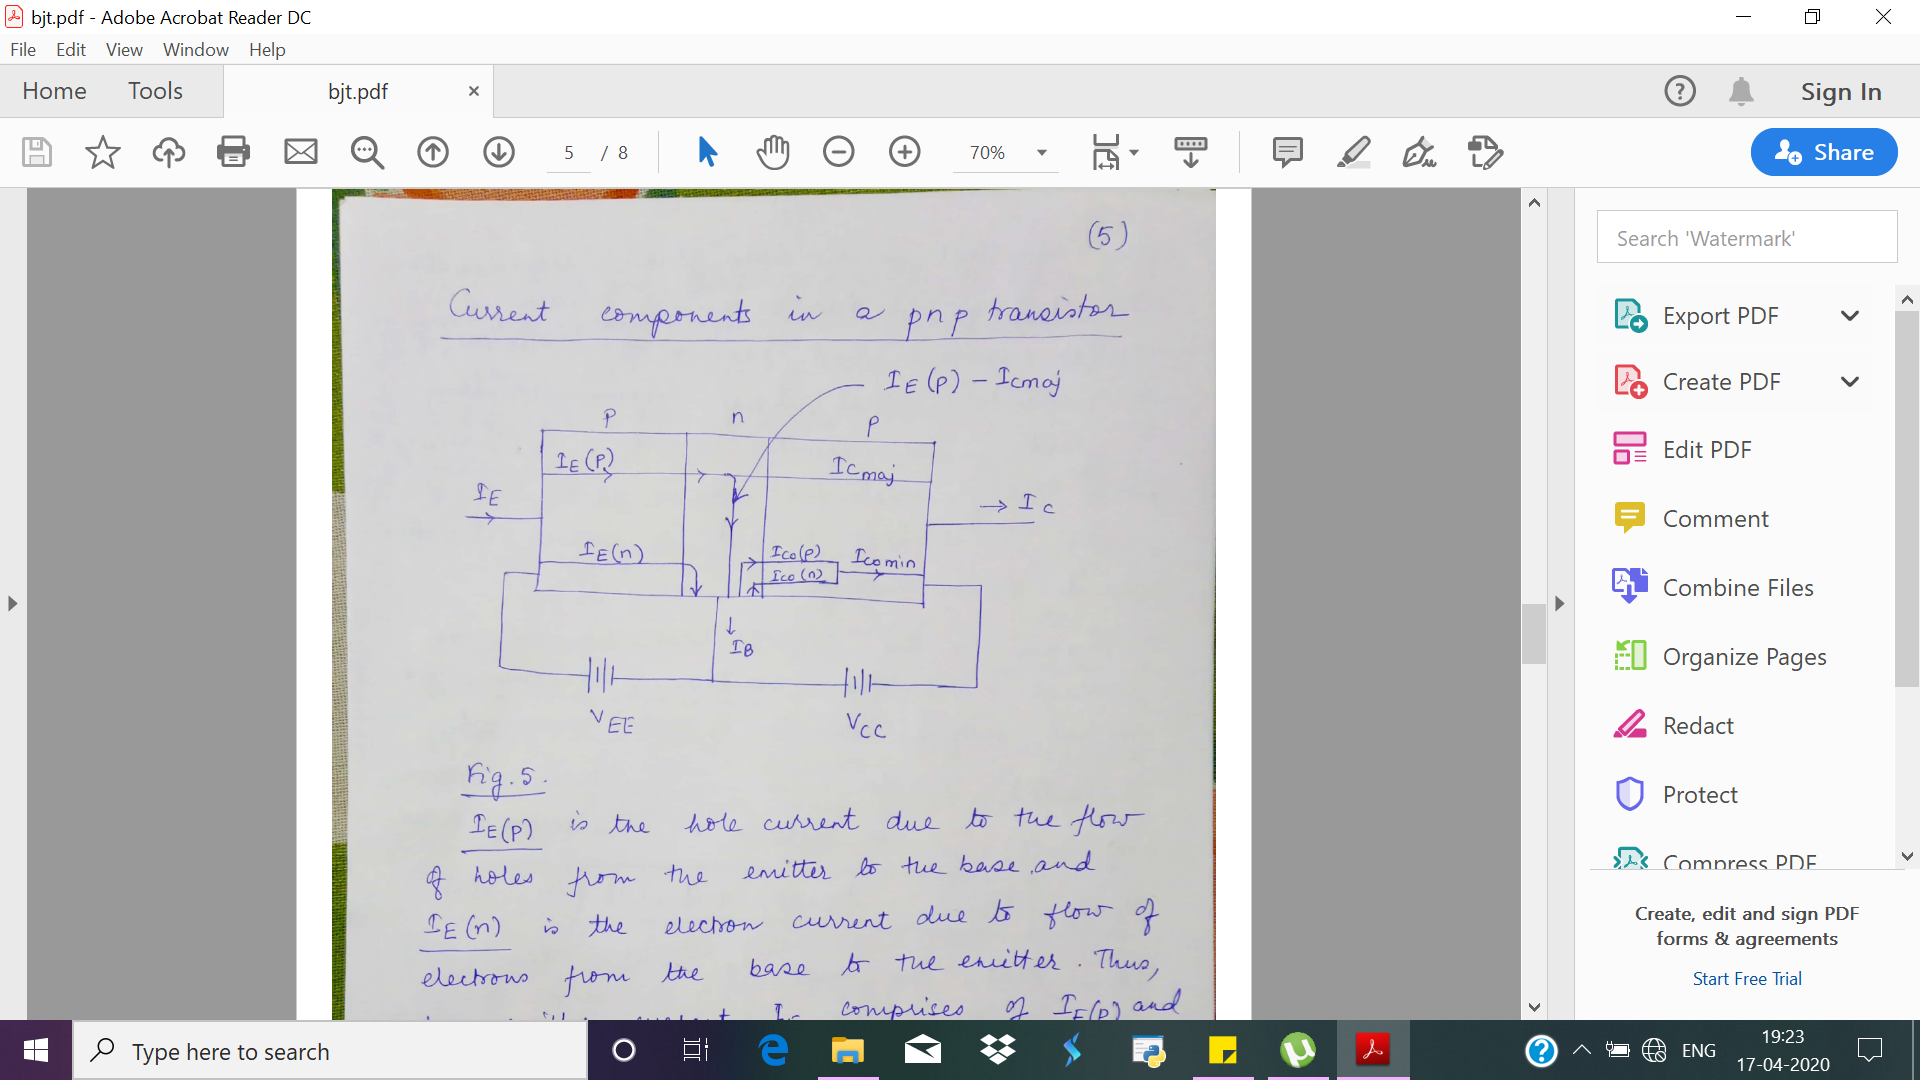 bjt.pdf - Adobe Acrobat Reader DC
File Edit View Window Help
Home Tools bjt.pdf × ? Sign In
5 / 8 70% Share
(5)
Current components in a pnp transistor
IE(P) - ICmaj
P n P
IE(P) ICmaj
IE → IC
IE(n) Ico(p) Icomin
Ico(n)
IB
VEE VCC
Fig. 5.
IE(P) is the hole current due to the flow
of holes from the emitter to the base and
IE(n) is the electron current due to flow of
electrons from the base to the emitter. Thus,
comprises of IE(P) and
Search 'Watermark'
Export PDF
Create PDF
Edit PDF
Comment
Combine Files
Organize Pages
Redact
Protect
Compress PDF
Create, edit and sign PDF
forms & agreements
Start Free Trial
Type here to search
ENG
19:23
17-04-2020